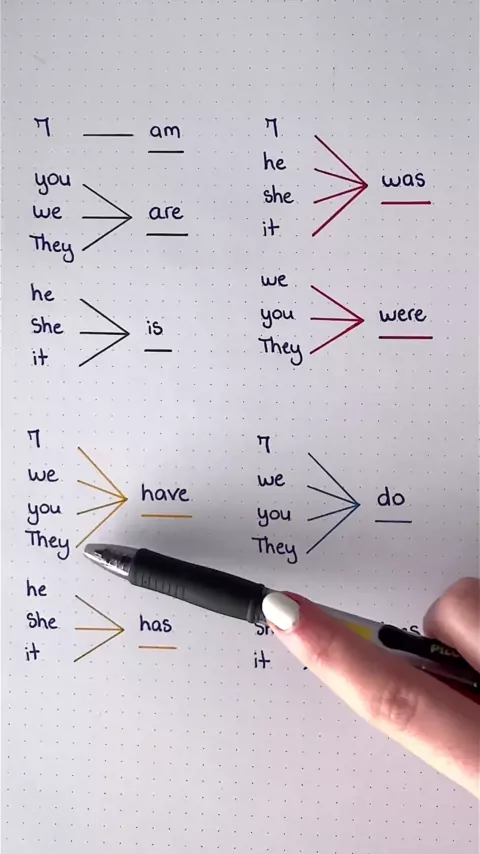 I am
you
we are
They
he
She is
it
I
he
she was
it
we
you were
They
I
we have
you
They
he
She has
it
I
we do
you
They
it